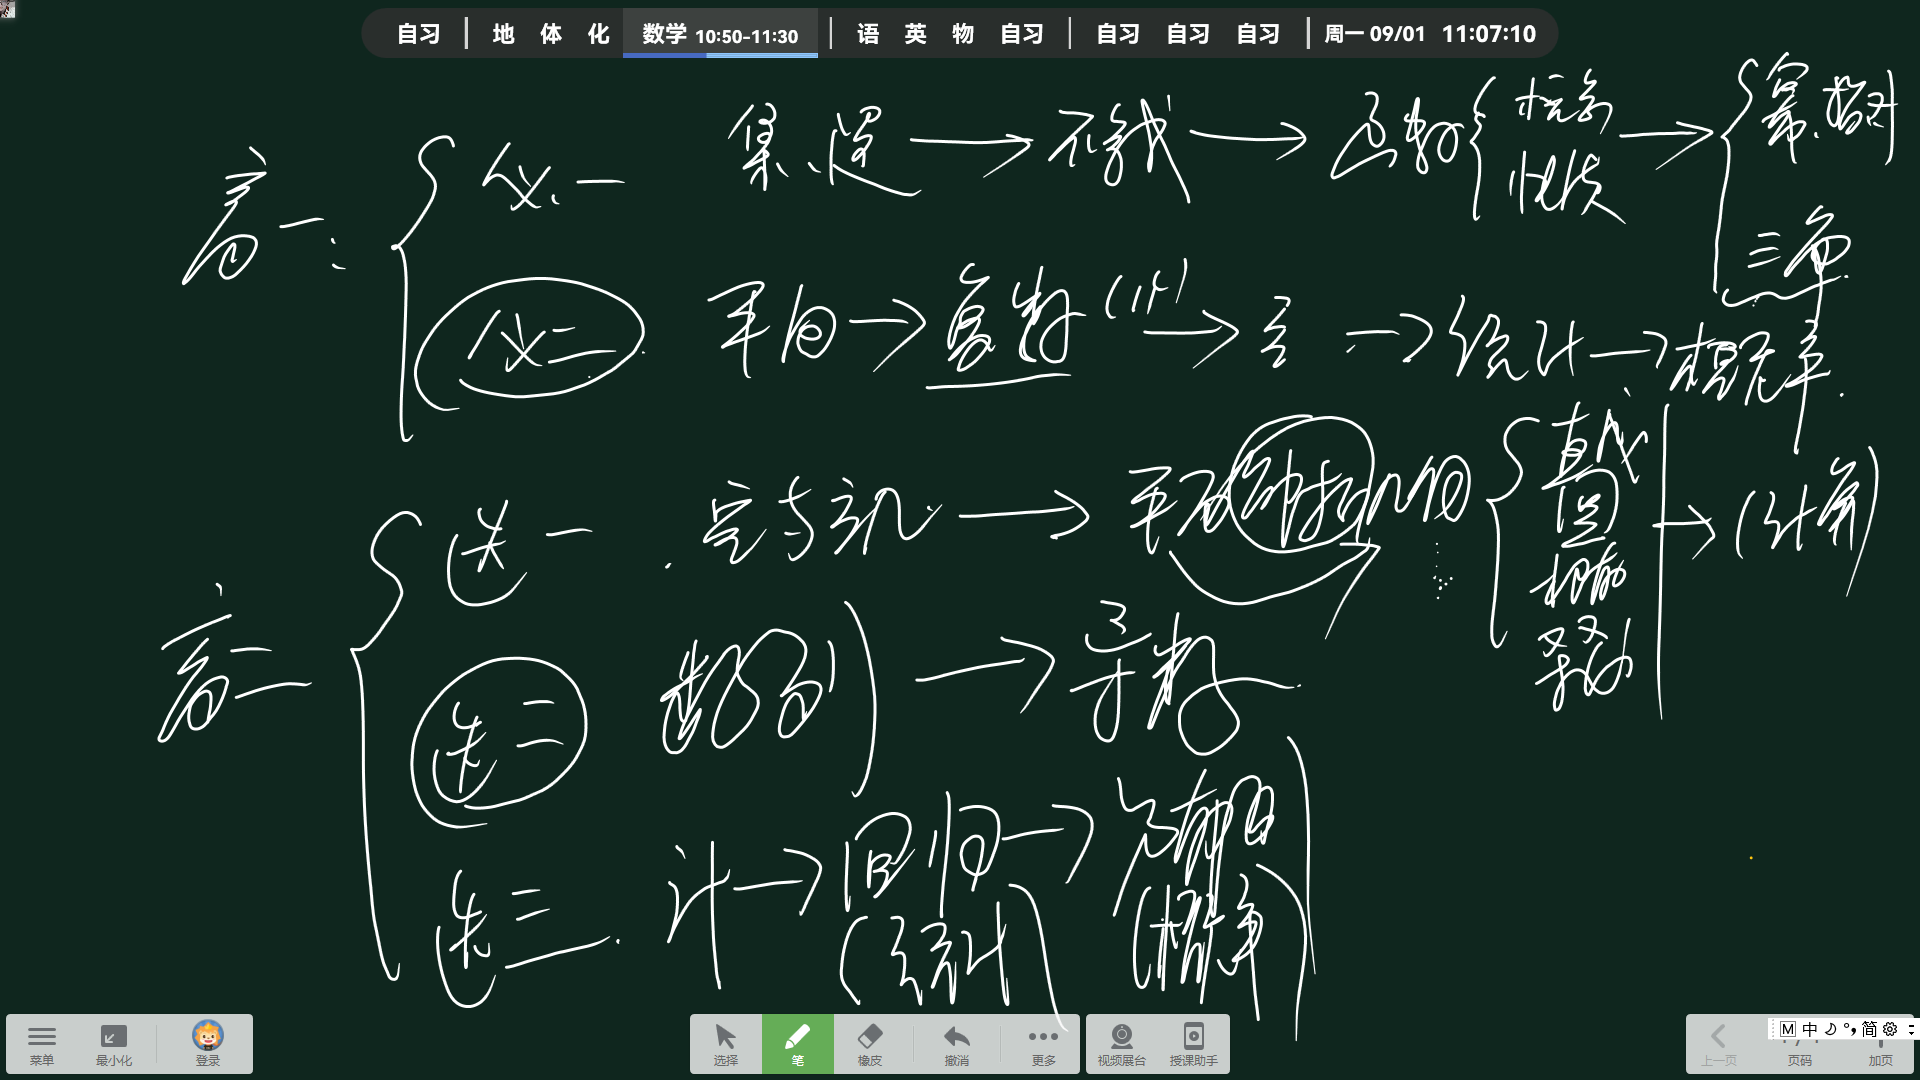 自习 | 地 体 化 数学 10:50-11:30 | 语 英 物 自习 | 自习 自习 自习 | 周一 09/01 11:07:10
高一: { 必一 集、逻 → 不等式 → 函数 { 概念 性质 → { 幂.指对 三角
必二 平向 → 复数 → 立 → 统计 → 概率
高二 { 选一 空与立几 → 平面解析几何 { 直线 圆 椭 双 → (计算)
选二 数列 → 导数
选三 计 → 回归 (统计) → 分布 (概率)
菜单 最小化 登录 选择 笔 橡皮 撤消 更多 视频展台 授课助手 上一页 页码 加页
M 中 简